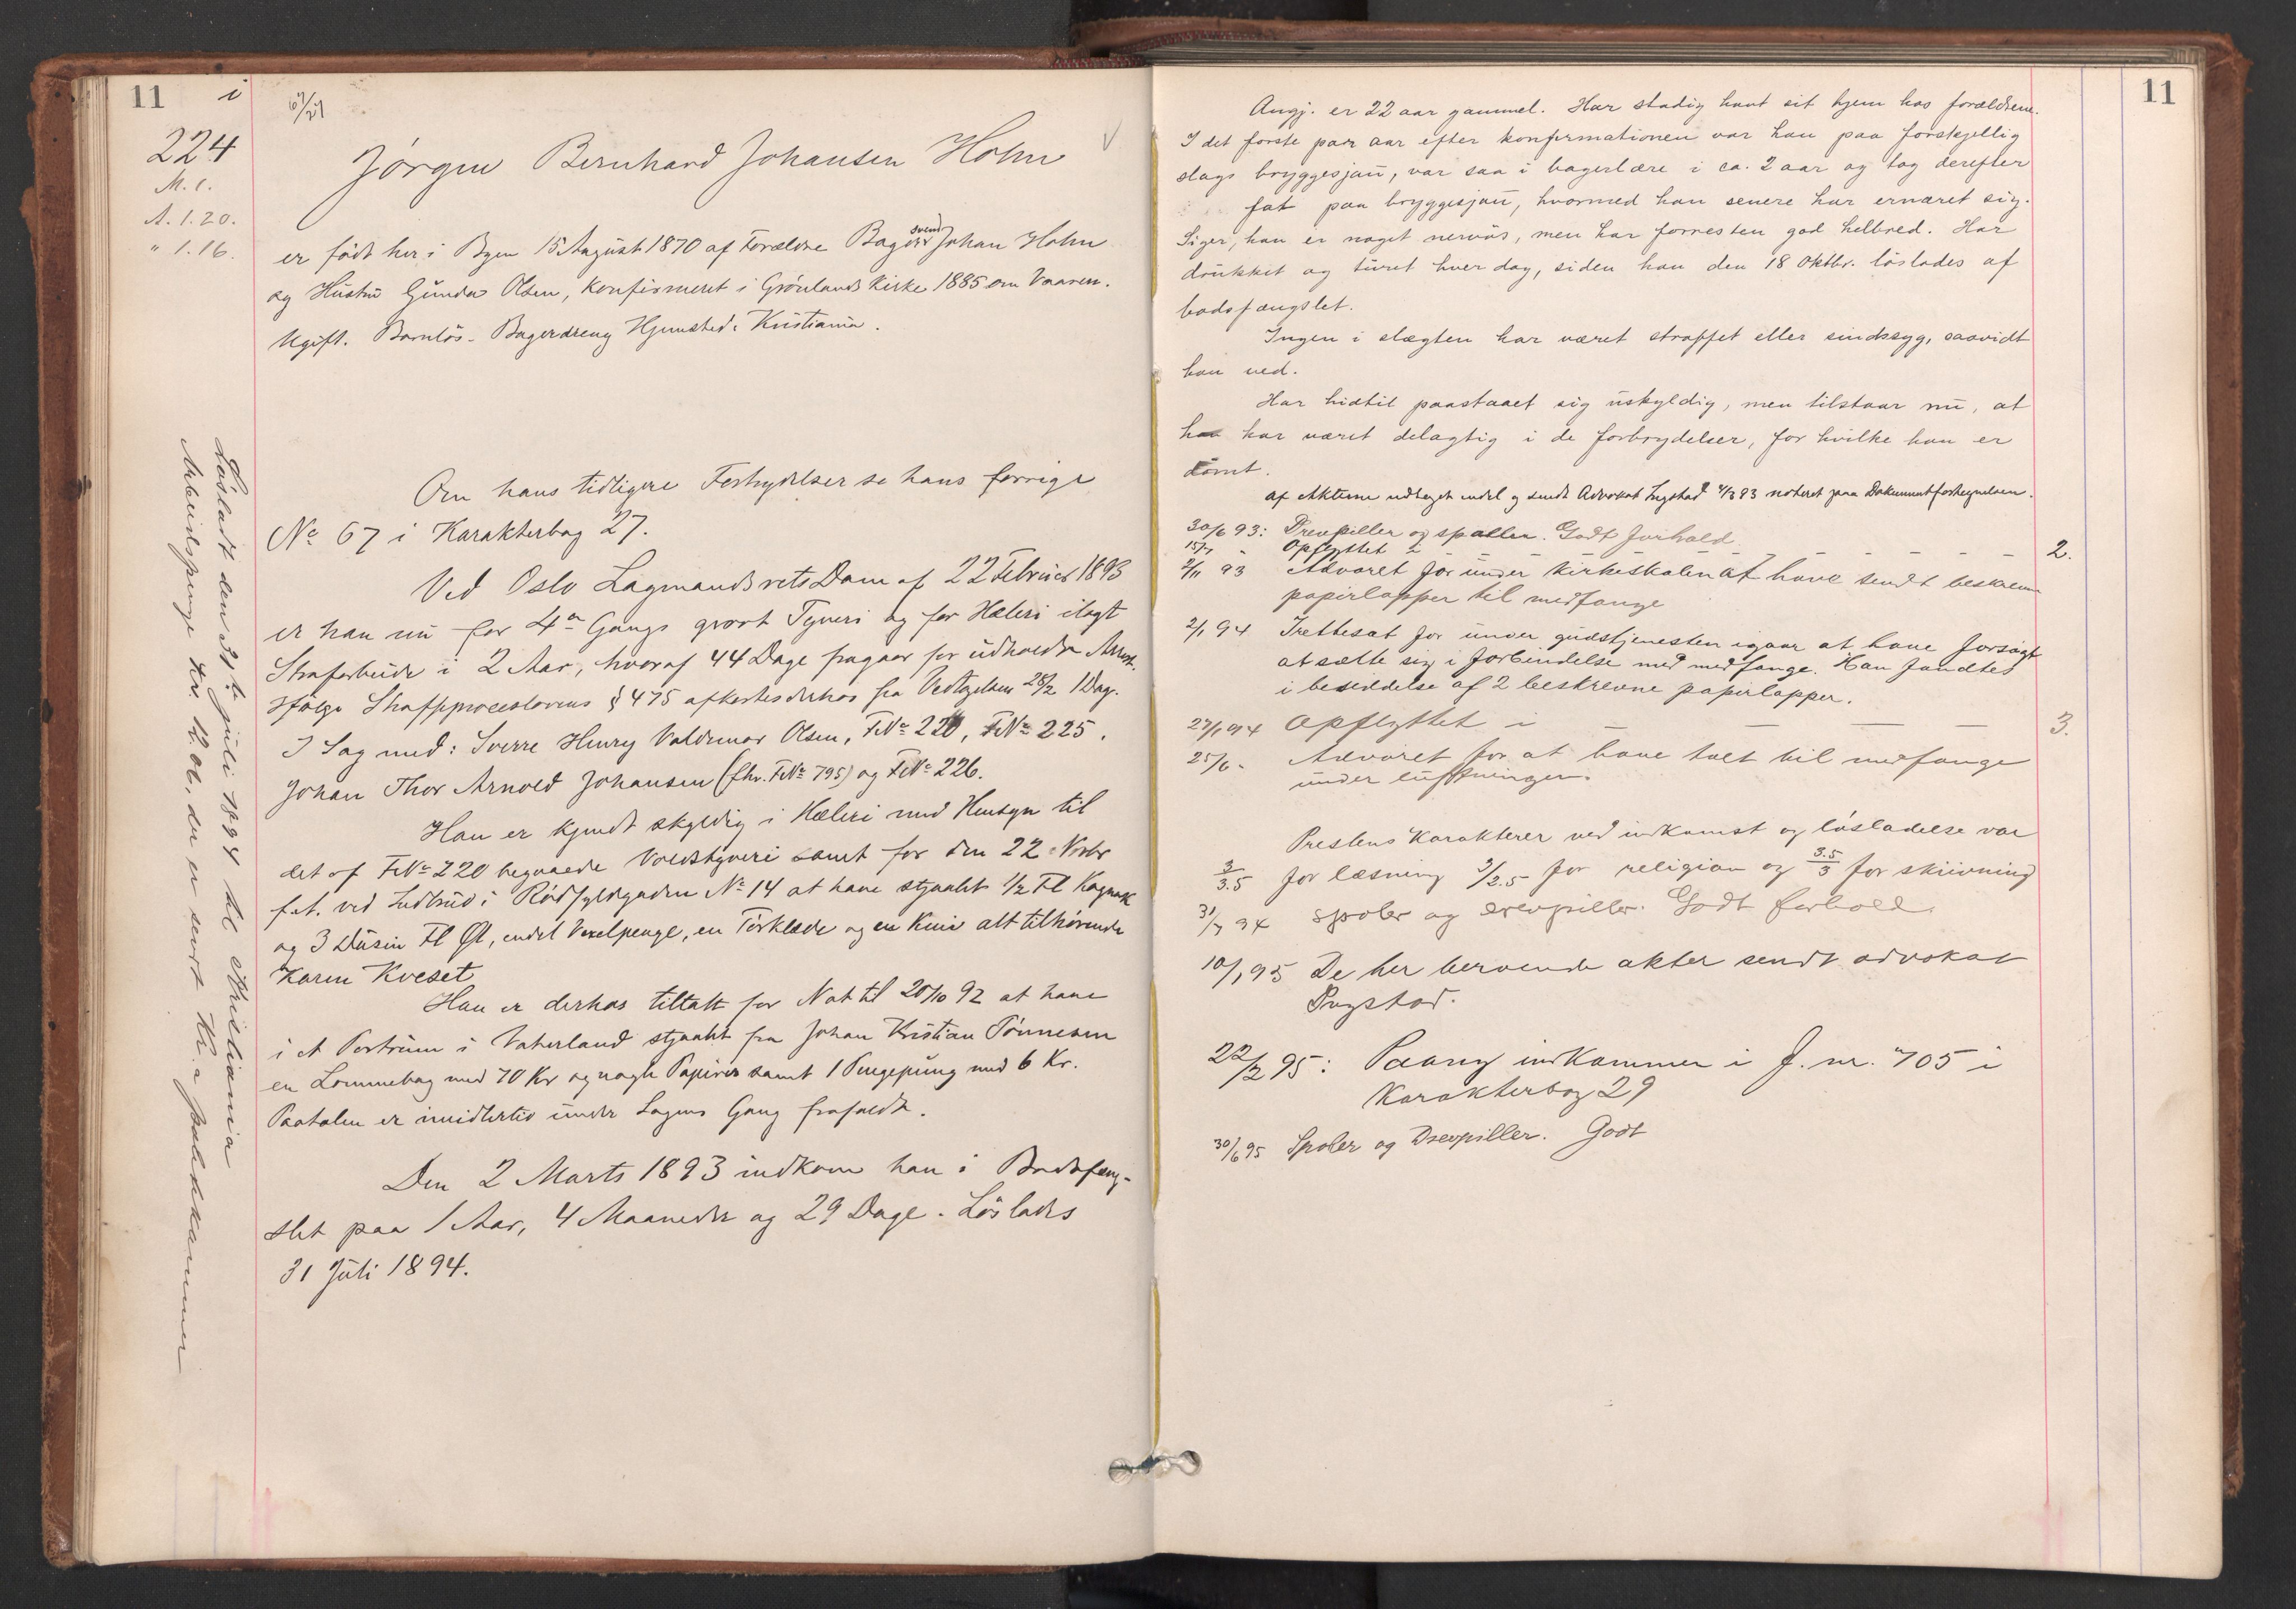 11 i
67/27
224
M. 1.
A. 1. 20.
" 1. 16.
Jörgen Bernhard Johansen Holm
er født her i Byen 15 August 1870 af Forældre Bagersvend Johan Holm
og Hustru Gunda Olsen, Konfirmeret i Grønlands Kirke 1885 om Vaaren.
Ugift. Barnløs. Bagerdreng Hjemsted: Kristiania.
Om hans tidligere Forbrydelser se hans forrige
No 67 i Karakterbog 27.
Ved Oslo Lagmandsrets Dom af 22 Februar 1893
er han nu for 4de Gangs grovt Tyveri og for Hæleri ilagt
Strafarbeide i 2 Aar, hvoraf 44 Dage fragaar for udholdt Arrest.
Ifølge Straffproceslovens § 475 afkortes derhos fra Vedtagelsen 28/2 1 Dag.
I Sag med: Sverre Henry Valdemar Olsen, F No 220, F No 225.
Johan Thor Arnold Johansen (fhv. F No 795) og F No 226.
Han er kjendt skyldig i Hæleri med Hensyn til
det af F No 220 begaaede Voldstyveri samt for den 22 Novbr
f. A. ved Indbrud i Rødfyldgaden No 14 at have stjaalet 1/2 Fl Kognak
og 3 Dusin Fl Øl, endel Vexelpenge, en Tørklæde og en Kniv alt tilhørende
Karen Kveset
Han er derhos tiltalt for Nat til 20/10 92 at have
i et Portrum i Vaterland stjaalet fra Johan Kristian Tønnesen
en Lommebog med 70 Kr og nogle Papirer samt 1 Pengepung med 6 Kr.
Paatalen er imidlertid under Sagens Gang frafaldt.
Den 2 Marts 1893 indkom han i Bodsfæng-
slet paa 1 Aar, 4 Maaneder og 29 Dage. Löslades
31 Juli 1894.
Lösladt den 31te juli 1894 til Kristiania
Arbeidspenge Kr. 12.06, der er sendt Kr.a politikammer
11
Angj. er 22 aar gammel. Har stadig havt sit hjem hos forældrene.
I det første par aar efter konfirmationen var han paa forskjellig
slags bryggesjau, var saa i bagerlære i ca. 2 aar og tog derefter
fat paa bryggesjau, hvormed han senere har ernæret sig.
Siger, han er noget nervøs, men har forresten god helbred. Har
drukket og turet hver dag, siden han den 18 oktbr. løslades af
bodsfængslet.
Ingen i slægten har været straffet eller sindssyg, saavidt
han ved.
Har hidtil paastaaet sig uskyldig, men tilstaar nu, at
han har været delagtig i de forbrydelser, for hvilke han er
dømt.
Af Akterne udtaget endel og sendt Advokat Ingstad 4/3 93 noteret paa Dokumentfortegnelsen.
30/6 93: Drevpiller og spoller. Godt forhold
15/7 " Opflyttet i — — — — — 2.
2/11 93 Advaret for under kirkeskolen at have sendt beskrevne
papirlapper til medfange
2/1 94 Irettesat for under gudstjenesten igaar at have forsøgt
at sætte sig i forbindelse med medfange. Han fandtes
i besiddelse af 2 beskrevne papirlapper.
27/1 94 Opflyttet i — — — — 3.
25/6 - Advaret for at have talt til medfange
under luftningen.
Prestens karakterer ved indkomst og løsladelse var
3/3.5 for læsning 3/2.5 for religion og 3.5/3 for skrivning
31/7 94 Spoler og drevpiller. Godt forhold.
10/1 95 De her beroende akter sendt advokat
Ingstad.
22/2 95: Paany indkommen i F. nr. 705 i
Karakterbog 29
30/6 95 Spoler og Drevpiller. Godt